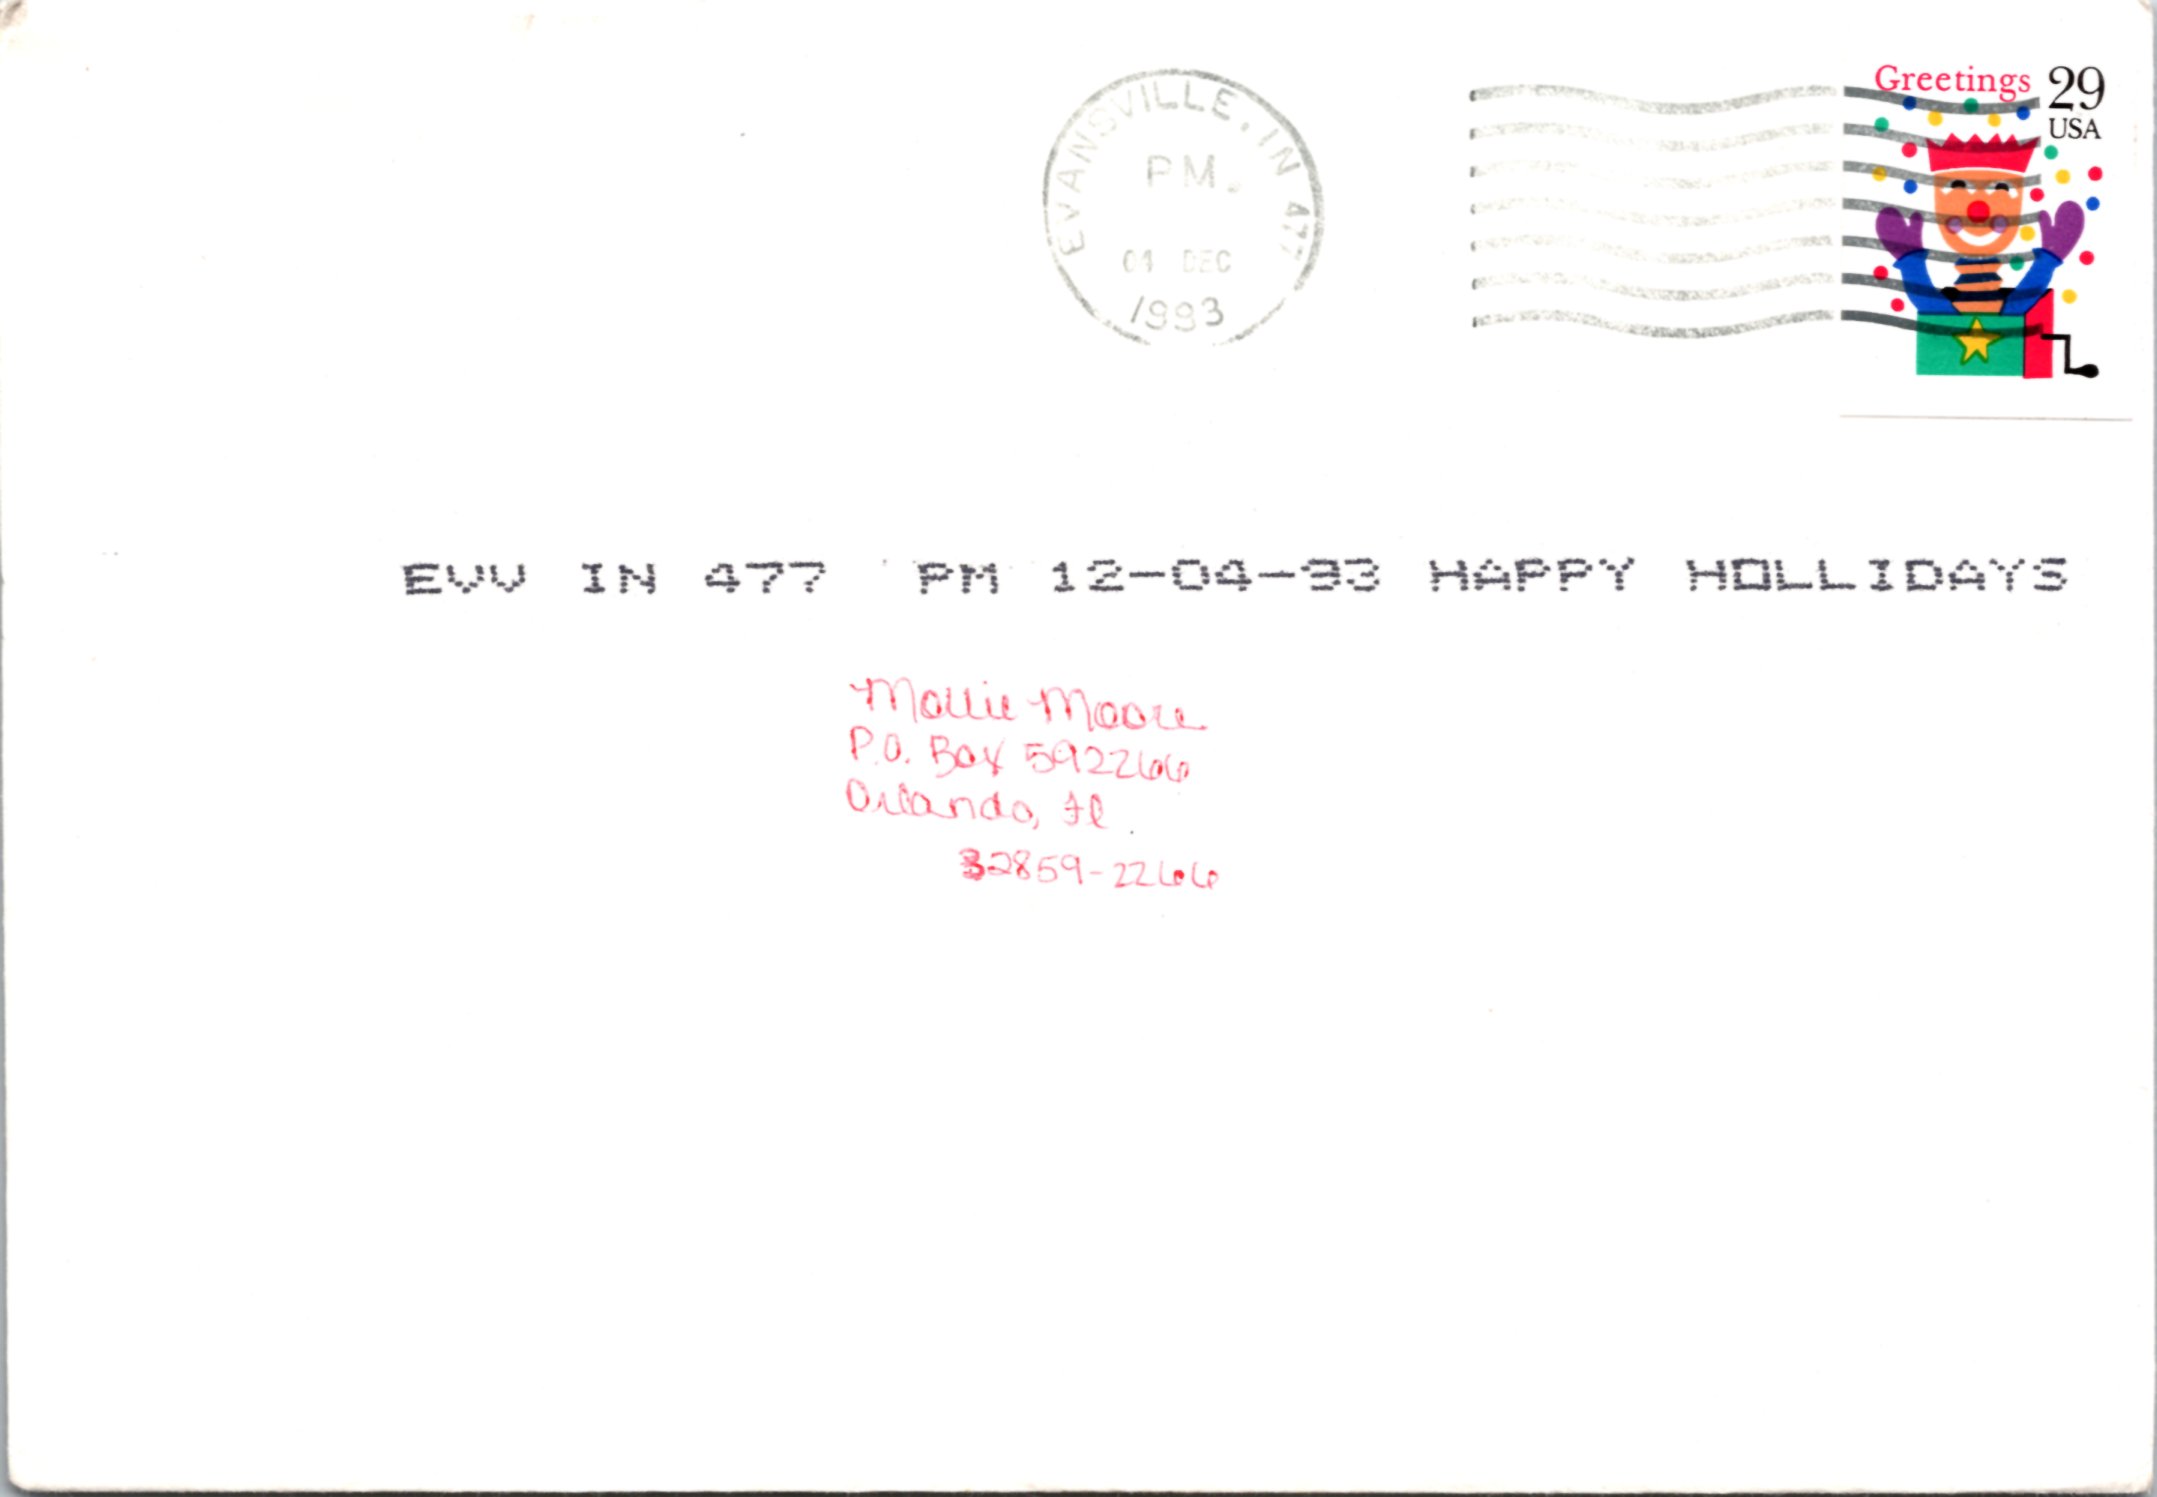 EVANSVILLE, IN 477
PM.
04 DEC
1993
Greetings 29
USA
EVV IN 477 PM 12-04-93 HAPPY HOLLIDAYS
Mollie Moore
P.O. Box 592266
Orlando, Fl
32859-2266